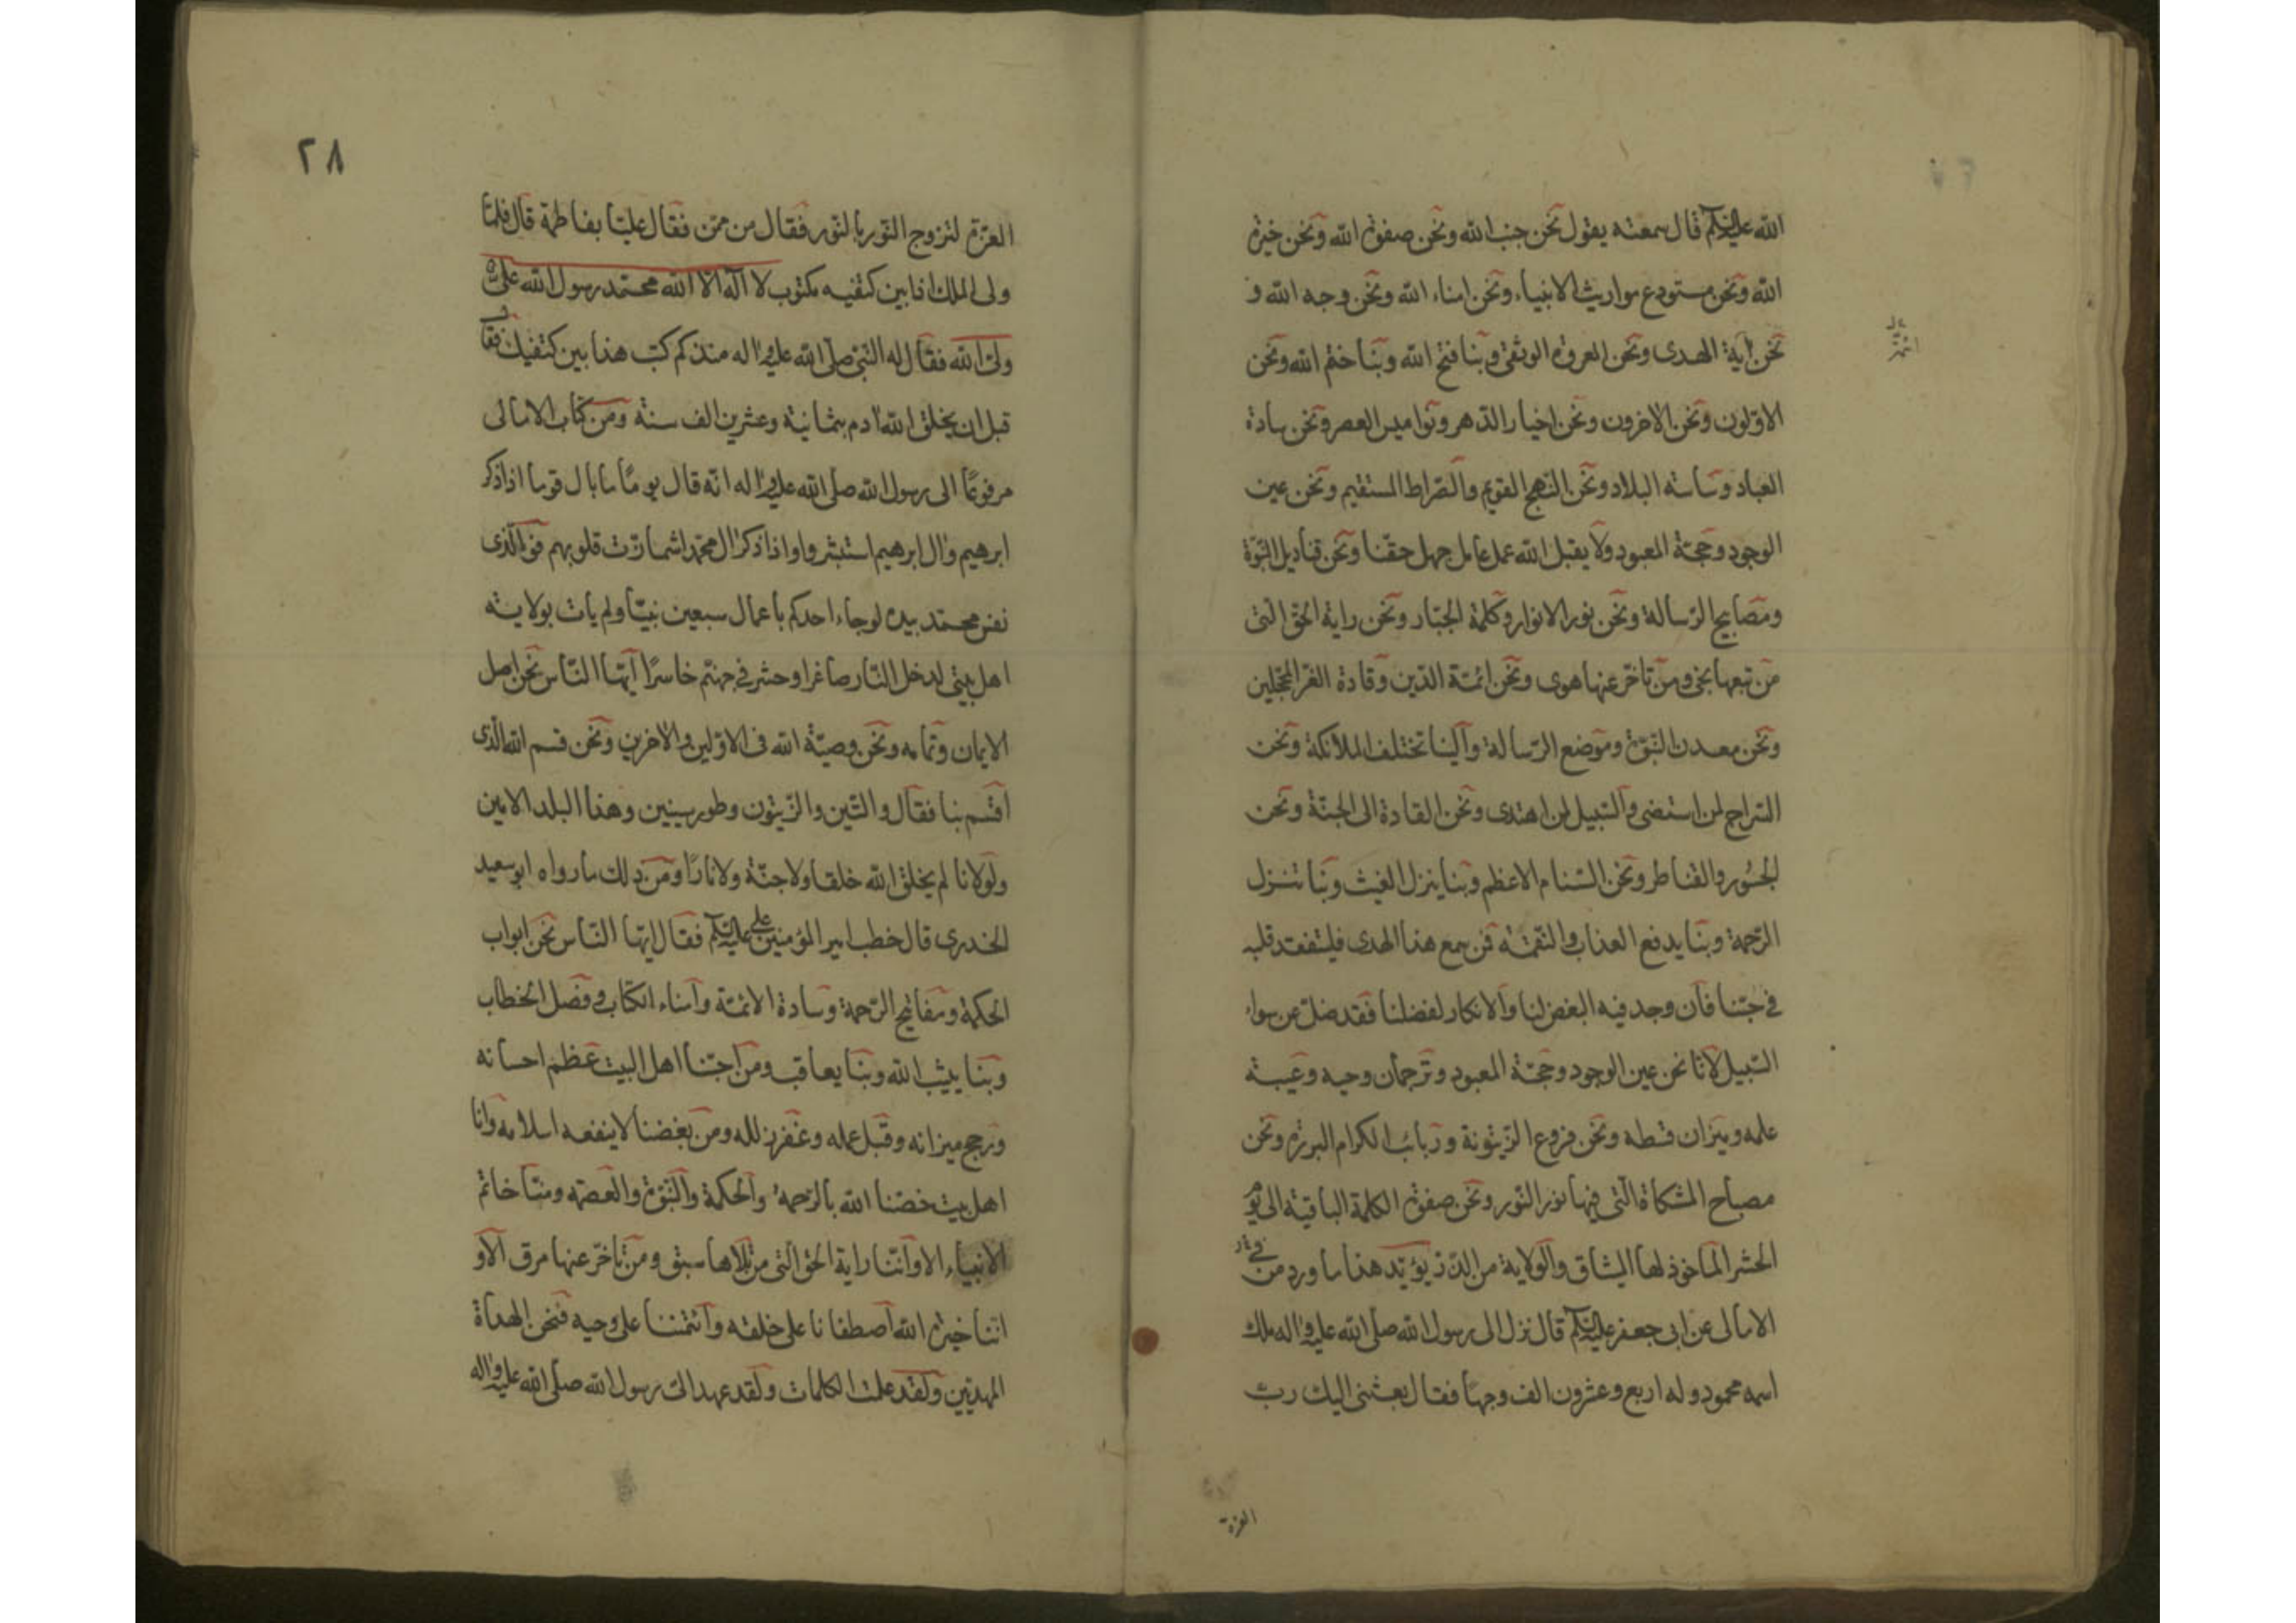 الله عليه السلام قال سمعته يقول نحن جنب الله ونحن صفوة الله ونحن خيرة
الله ونحن مستودع مواريث الانبياء ونحن امناء الله ونحن وجه الله و
نحن آية الهدى ونحن العروة الوثقى وبنا فتح الله وبنا ختم الله ونحن
الاولون ونحن الاخرون ونحن اخيار الدهر ونواميس العصر ونحن سادة
العباد وساسة البلاد ونحن النهج القويم والصراط المستقيم ونحن عين
الوجود وحجة المعبود ولا يقبل الله عمل عامل جهل حقنا ونحن قناديل النبوة
ومصابيح الرسالة ونحن نور الانوار وكلمة الجبار ونحن راية الحق التى
من تبعها نجى ومن تاخر عنها هوى ونحن ائمة الدين وقادة الغر المحجلين
ونحن معدن النبوة وموضع الرسالة والينا تختلف الملائكة ونحن
السراج لمن استضى والسبيل لمن اهتدى ونحن القادة الى الجنة ونحن
الجسور والقناطر ونحن السنام الاعظم وبنا ينزل الغيث وبنا تنزل
الرحمة وبنا يدفع العذاب والنقمة فمن سمع هذا الهدى فليتفقد قلبه
في حبنا فان وجد فيه البغض لنا والانكار لفضلنا فقد ضل عن سواء
السبيل لانا نحن عين الوجود وحجة المعبود وترجمان وحيه وعيبة
علمه وميزان قسطه ونحن فروع الزيتونة وربائب الكرام البررة ونحن
مصباح المشكاة التى فيها نور النور ونحن صفوة الكلمة الباقية الى يوم
الحشر الماخوذ لها الميثاق والولاية من الذر يؤيد هذا ما ورد من فى
الامالى عن ابى جعفر عليه السلام قال نزل الى رسول الله صلى الله عليه واله ملك
اسمه محمود وله اربع وعشرون الف وجها فقال بعثنى اليك رب
العزة
٢٨
العزة لتزوج النور بالنور فقال من ممن فقال عليا بفاطمة قال فلما
ولى الملك اذا بين كتفيه مكتوب لا اله الا الله محمد رسول الله على
ولى الله فقال له النبى صلى الله عليه واله منذ كم كتب هذا بين كتفيك فقال
قبل ان يخلق الله ادم بثمانية وعشرين الف سنة ومن كتاب الامالى
مرفوعًا الى رسول الله صلى الله عليه واله انه قال يومًا ما بال قوما اذا ذكر
ابرهيم وال ابرهيم استبشروا واذا ذكر ال محمد اشمازت قلوبهم فوالذى
نفس محمد بيده لو جاء احدكم باعمال سبعين نبيًا ولم يات بولاية
اهل بيتى لدخل النار صاغرا وحشر فى جهنم خاسرًا ايها الناس نحن اصل
الايمان وتمامه ونحن وصية الله فى الاولين والاخرين ونحن قسم الله الذى
اقسم بنا فقال والتين والزيتون وطور سينين وهذا البلد الامين
ولولانا لم يخلق الله خلقا ولا جنة ولا نارًا ومن ذلك ما رواه ابو سعيد
الخدرى قال خطب امير المؤمنين على عليه السلام فقال ايها الناس نحن ابواب
الحكمة ومفاتيح الرحمة وسادة الائمة وامناء الكتاب وفصل الخطاب
وبنا يثيب الله وبنا يعاقب ومن احبنا اهل البيت عظم احسانه
ورجح ميزانه وقبل عمله وغفر زلله ومن بغضنا لا ينفعه اسلامه وانا
اهل بيت خصنا الله بالرحمة والحكمة والنبوة والعصمة ومنا خاتم
الانبياء الا واننا راية الحق التى من تلاها سبق ومن تاخر عنها مرق الا و
اننا خيرة الله اصطفانا على خلقه وائتمننا على وحيه فنحن الهداة
المهديين ولقد علمت الكلمات ولقد عهد الى رسول الله صلى الله عليه واله